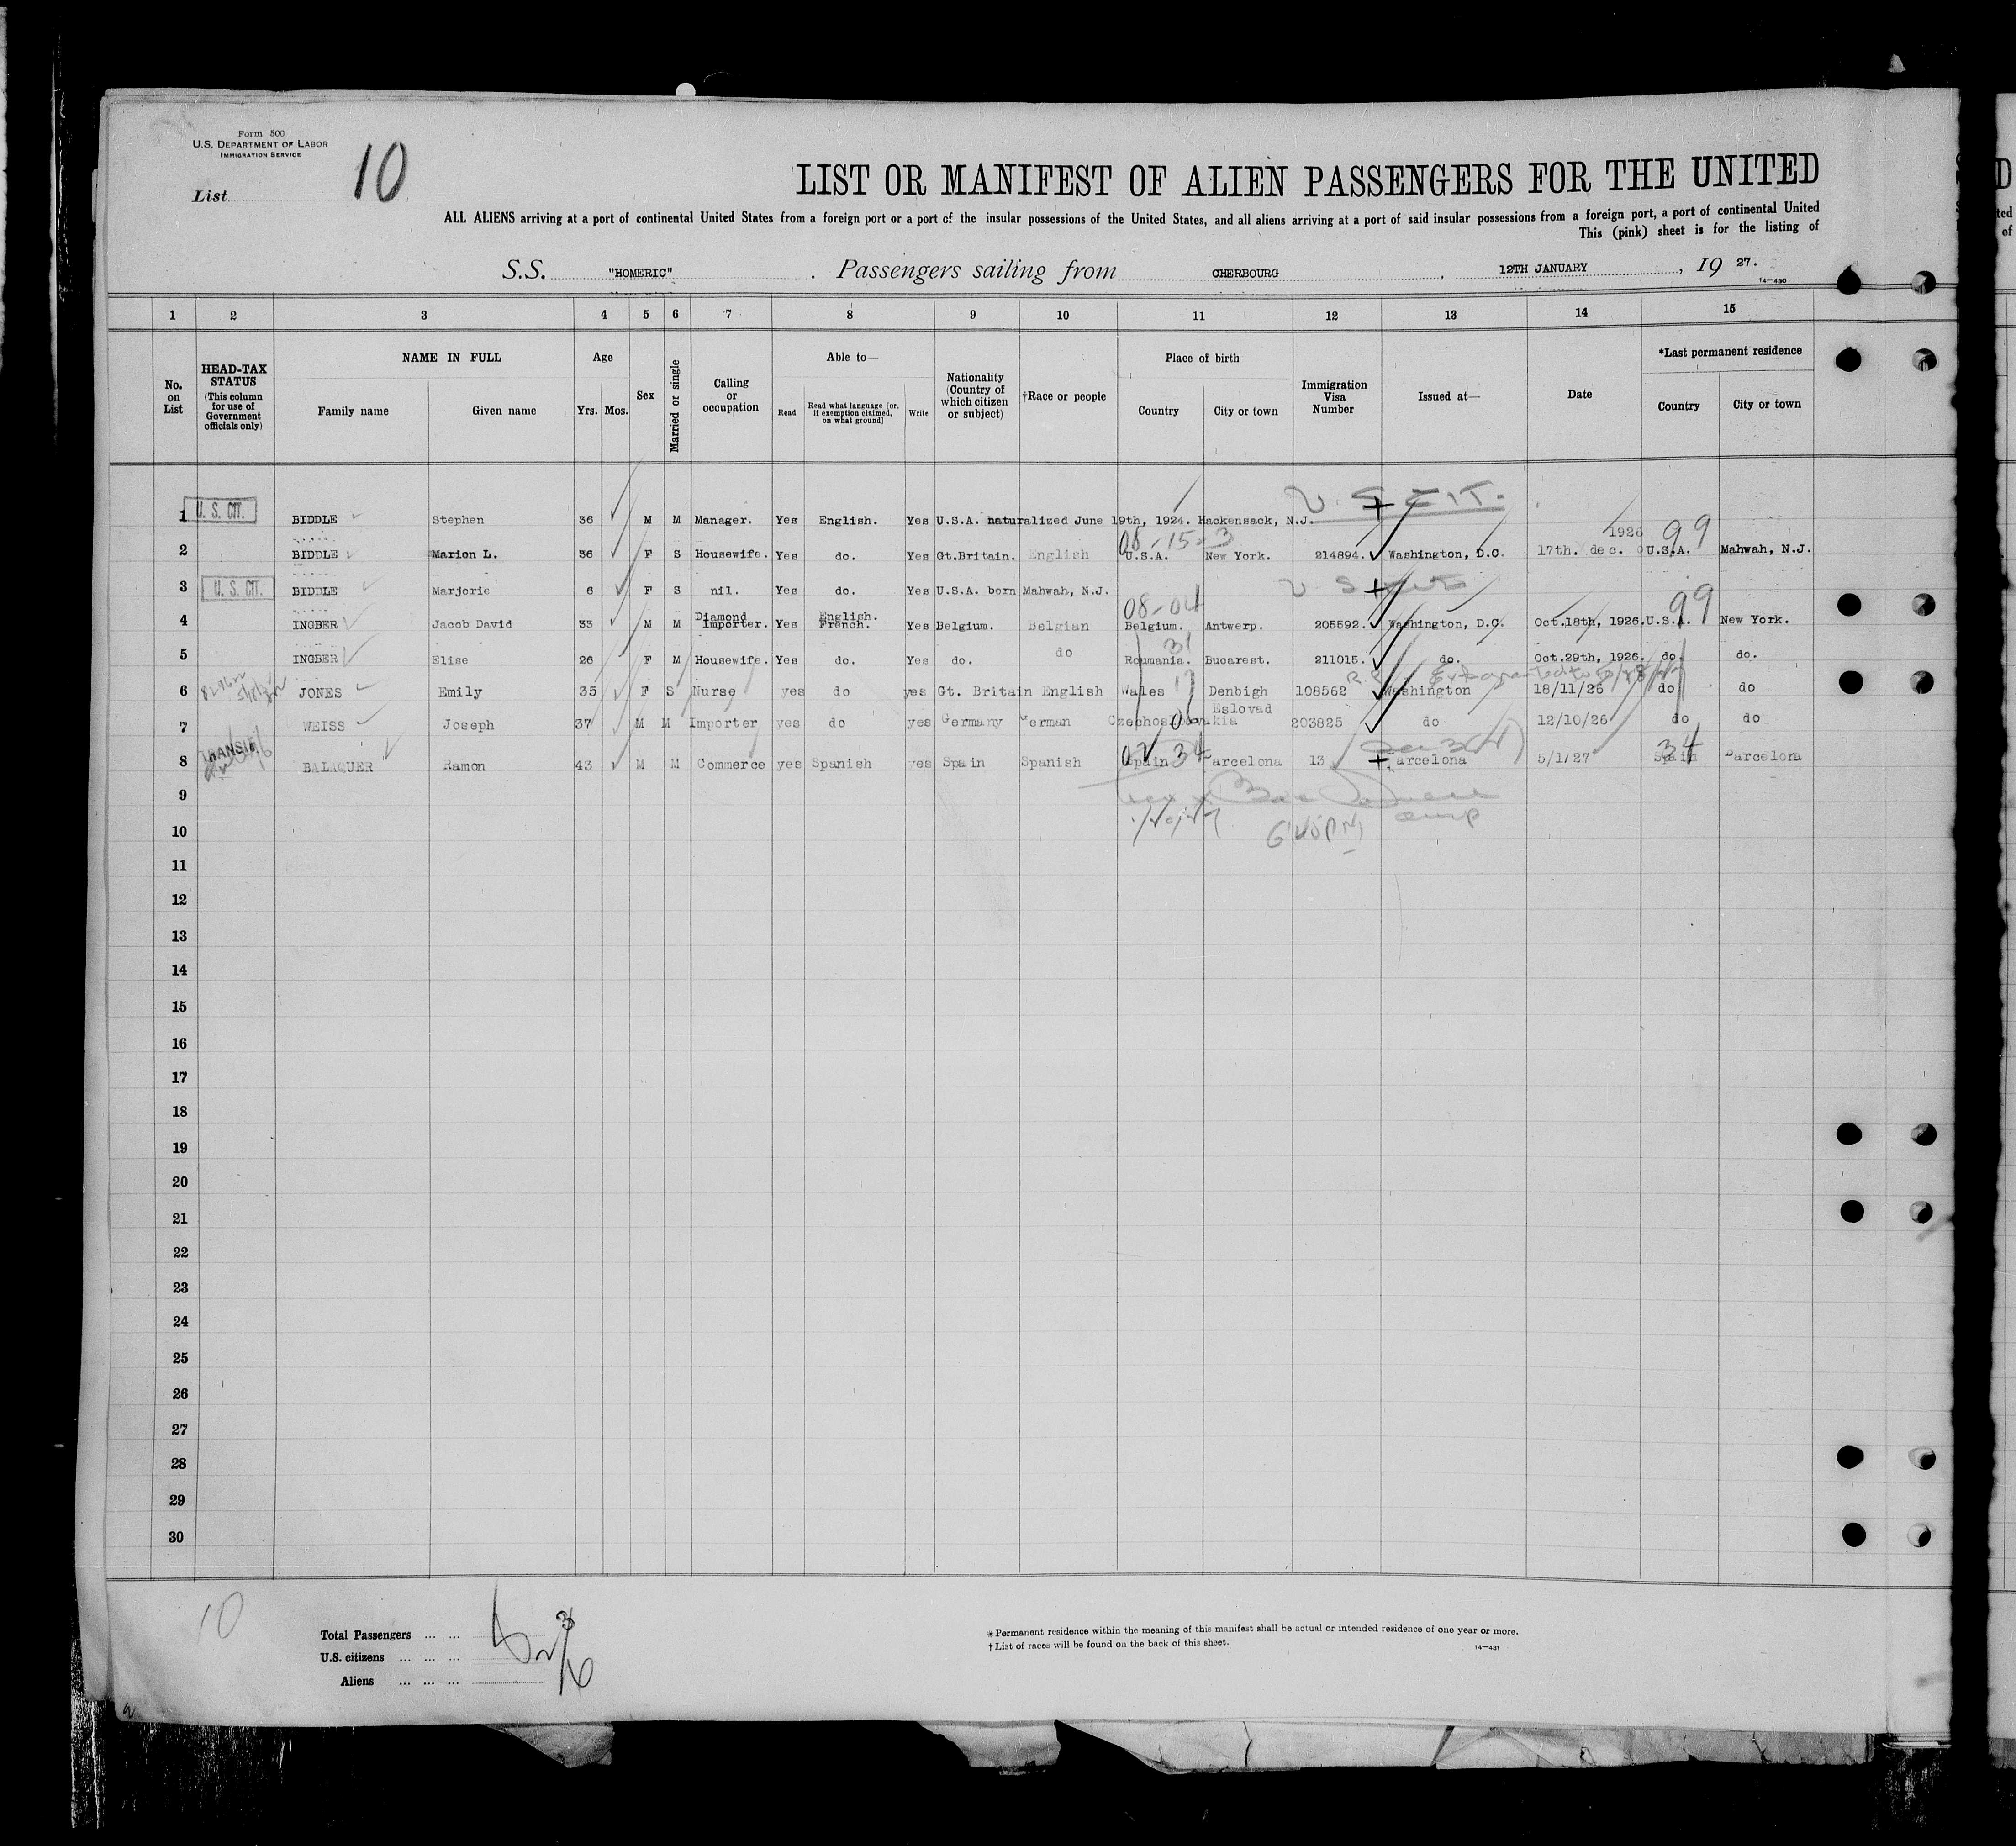 Form 500
U.S. DEPARTMENT OF LABOR
IMMIGRATION SERVICE
List 10
LIST OR MANIFEST OF ALIEN PASSENGERS FOR THE UNITED
ALL ALIENS arriving at a port of continental United States from a foreign port or a port of the insular possessions of the United States, and all aliens arriving at a port of said insular possessions from a foreign port, a port of continental United
This (pink) sheet is for the listing of
S.S. "HOMERIC" . Passengers sailing from CHERBOURG , 12TH JANUARY , 19 27.
14—430
1 2 3 4 5 6 7 8 9 10 11 12 13 14 15
No. on List
HEAD-TAX STATUS (This column for use of Government officials only)
NAME IN FULL
Family name Given name
Age
Yrs. Mos.
Sex
Married or single
Calling or occupation
Able to—
Read Read what language [or, if exemption claimed, on what ground] Write
Nationality (Country of which citizen or subject)
†Race or people
Place of birth
Country City or town
Immigration Visa Number
Issued at—
Date
*Last permanent residence
Country City or town
U. S. CIT.
1 U. S. CIT. BIDDLE Stephen 36 M M Manager. Yes English. Yes U.S.A. naturalized June 19th, 1924. Hackensack, N.J.
08-15-3 1926 99
2 BIDDLE Marion L. 36 F S Housewife. Yes do. Yes Gt.Britain. English U.S.A. New York. 214894. Washington, D.C. 17th. dec. U.S.A. Mahwah, N.J.
3 U. S. CIT. BIDDLE Marjorie 6 F S nil. Yes do. Yes U.S.A. born Mahwah, N.J. U S
08-04 99
4 INGBER Jacob David 33 M M Diamond Importer. Yes English. French. Yes Belgium. Belgian Belgium. Antwerp. 205592. Washington, D.C. Oct.18th, 1926. U.S.A. New York.
31
5 INGBER Elise 26 F M Housewife. Yes do. Yes do. do Roumania. Bucarest. 211015. do. Oct.29th, 1926. do. do.
6 JONES Emily 35 F S Nurse yes do yes Gt. Britain English Wales Denbigh 108562 Washington 18/11/26 do do
Eslovad
7 WEISS Joseph 37 M M Importer yes do yes Germany German Czechoslovakia 203825 do 12/10/26 do do
8 TRANSIT BALAQUER Ramon 43 M M Commerce yes Spanish yes Spain Spanish Spain 34 Barcelona 13 Barcelona 5/1/27 Spain 34 Barcelona
9
10
11
12
13
14
15
16
17
18
19
20
21
22
23
24
25
26
27
28
29
30
10
Total Passengers ... ...
U.S. citizens ... ... ...
Aliens ... ... ...
* Permanent residence within the meaning of this manifest shall be actual or intended residence of one year or more.
† List of races will be found on the back of this sheet.
14—431